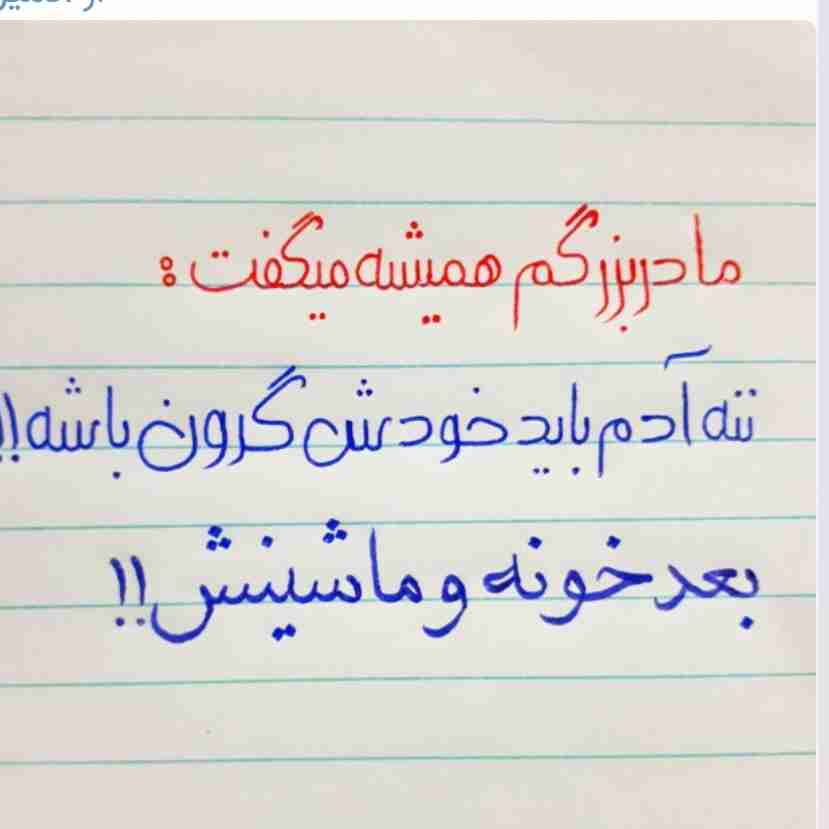 مادربزرگم همیشه میگفت :
ننه آدم باید خودش گرون باشه!!
بعد خونه و ماشینش!!